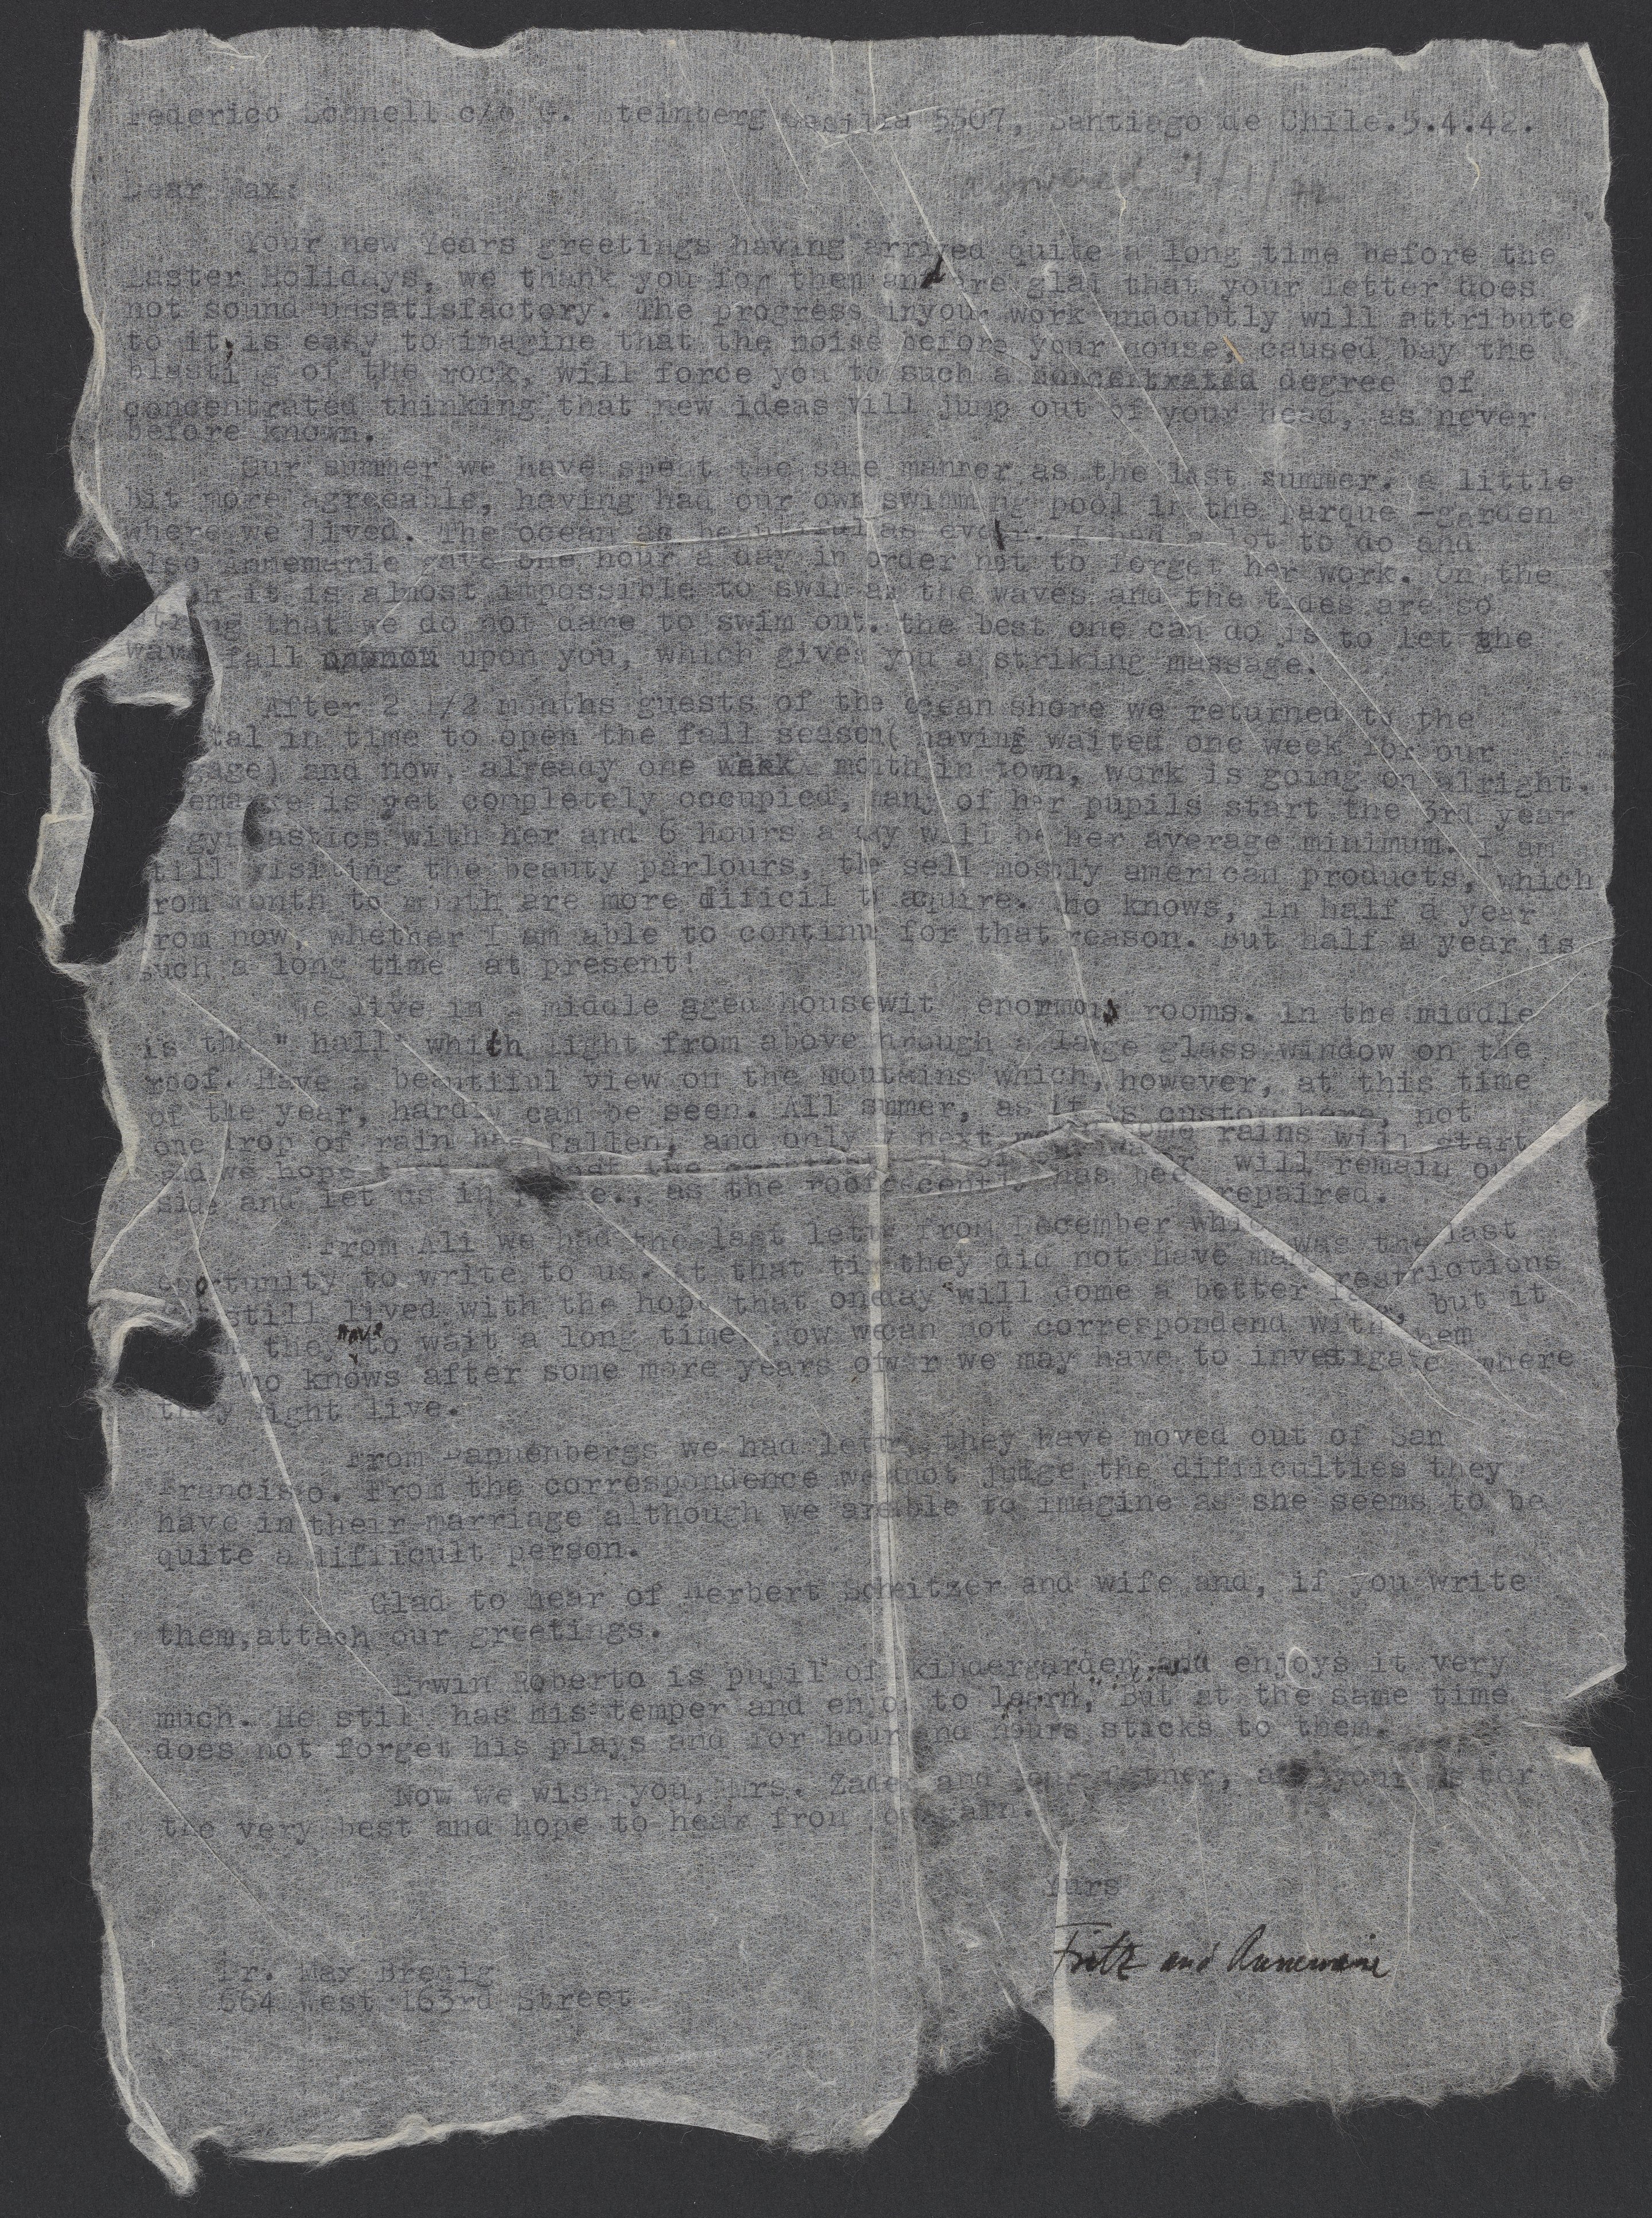 Federico Schnell c/o G. Steinberg Casilla 5507, Santiago de Chile.5.4.42.
Dear Max:
Your new Years greetings having arrived quite a long time before the
Easter Holidays, we thank you for them and are glad that your letter does
not sound unsatisfactory. The progress inyour work undoubtly will attribute
to it, is easy to imagine that the noise before your house, caused bay the
blasting of the rock, will force you to such a degree of
concentrated thinking that new ideas will jump out of your head, as never
before known.
Our summer we have spent the same manner as the last summer. a little
bit more agreeable, having had our own swimming pool in the parque -garden
where we lived. The ocean as beautiful as ever. I had a lot to do and
also Annemarie gave one hour a day in order not to forget her work. On the
it is almost impossible to swim as the waves and the tides are so
strong that we do not dare to swim out. the best one can do is to let the
waves fall upon you, which gives you a striking massage.
After 2 1/2 months guests of the ocean shore we returned to the
tal in time to open the fall season( having waited one week for our
gage) and now, already one month in town, work is going on alright.
is yet completely occupied, many of her pupils start the 3rd year
gymnastics with her and 6 hours a day will be her average minimum. I am
still visiting the beauty parlours, the sell mostly american products, which
from month to month are more dificil to aquire. Who knows, in half a year
from now, whether I am able to continu for that reason. But half a year is
such a long time at present!
We live in a middle aged housewit enormous rooms. In the middle
is the " hall" with light from above through a large glass window on the
roof. Have a beautiful view on the moutains which, however, at this time
of the year, hardly can be seen. All summer, as it is custom here, not
one drop of rain has fallen, and only next some rains will start
and we hope the will remain out
side and let us in as the roof recently has been repaired.
From Ali we had the last letter from December which was the last
oportunity to write to us. At that time they did not have many restrictions
still lived with the hope that oneday will come a better, but it
they have to wait a long time. Now we can not correspondend with them
who knows after some more years of war we may have to investigate where
they might live.
From Pappenbergs we had letter, they have moved out of San
Francisco. From the correspondence we not judge the difficulties they
have in their marriage although we are able to imagine as she seems to be
quite a difficult person.
Glad to hear of Herbert Schweitzer and wife and, if you write
them,attach our greetings.
Erwin Roberto is pupil of kindergarden and enjoys it very
much. He still has his temper and enjoy to learn, But at the same time
does not forget his plays and for hour and hours sticks to them.
Now we wish you, Mrs. Zadek and your father, and your sister
the very best and hope to hear from you again.
Yurs
Fritz and Annemarie
Dr. Max Brenig
664 West 163rd Street